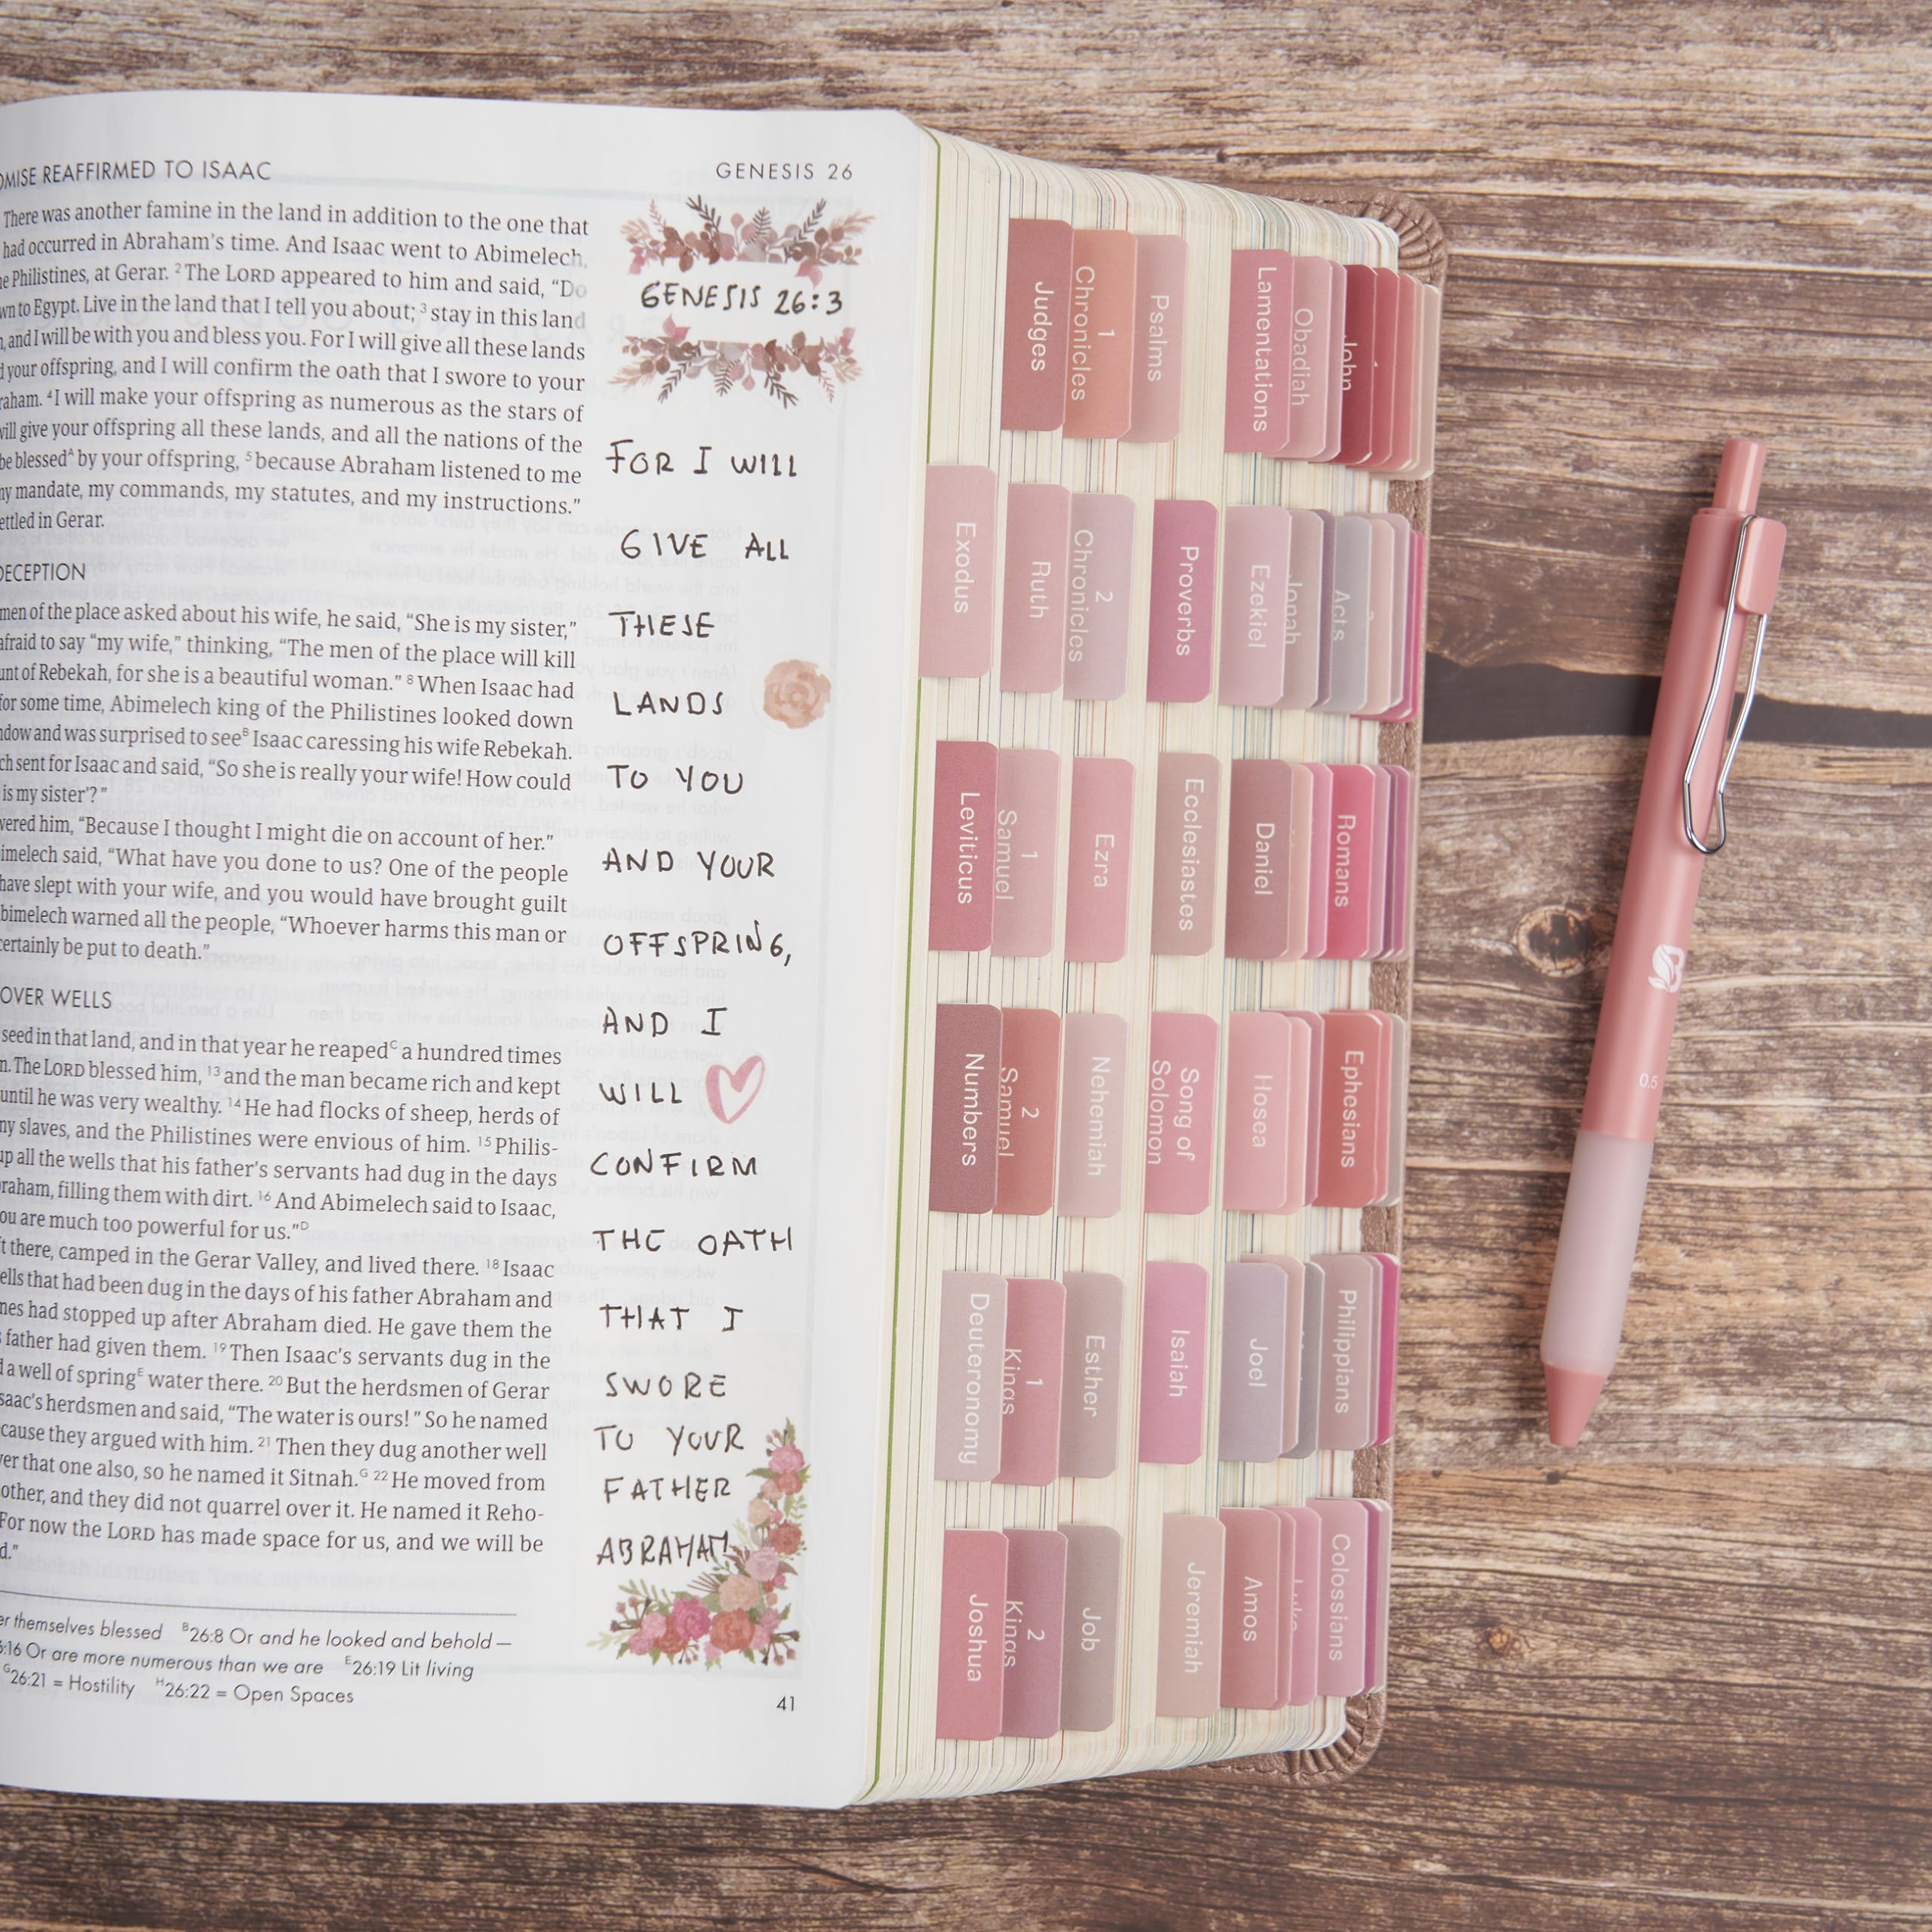 OMISE REAFFIRMED TO ISAAC
GENESIS 26
There was another famine in the land in addition to the one that
had occurred in Abraham's time. And Isaac went to Abimelech,
Philistines, at Gerar. ²The LORD appeared to him and said, “Do
to Egypt. Live in the land that I tell you about; ³stay in this land
and I will be with you and bless you. For I will give all these lands
your offspring, and I will confirm the oath that I swore to your
raham. ⁴I will make your offspring as numerous as the stars of
will give your offspring all these lands, and all the nations of the
be blessedᴬ by your offspring, ⁵because Abraham listened to me
my mandate, my commands, my statutes, and my instructions.”
ettled in Gerar.
DECEPTION
men of the place asked about his wife, he said, “She is my sister,”
afraid to say “my wife,” thinking, “The men of the place will kill
unt of Rebekah, for she is a beautiful woman.” ⁸When Isaac had
for some time, Abimelech king of the Philistines looked down
ndow and was surprised to seeᴮ Isaac caressing his wife Rebekah.
ch sent for Isaac and said, “So she is really your wife! How could
is my sister’?”
vered him, “Because I thought I might die on account of her.”
imelech said, “What have you done to us? One of the people
have slept with your wife, and you would have brought guilt
bimelech warned all the people, “Whoever harms this man or
certainly be put to death.”
OVER WELLS
seed in that land, and in that year he reapedᶜ a hundred times
The LORD blessed him, ¹³and the man became rich and kept
until he was very wealthy. ¹⁴He had flocks of sheep, herds of
ny slaves, and the Philistines were envious of him. ¹⁵Philis-
up all the wells that his father's servants had dug in the days
raham, filling them with dirt. ¹⁶And Abimelech said to Isaac,
ou are much too powerful for us.”ᴰ
ft there, camped in the Gerar Valley, and lived there. ¹⁸Isaac
ells that had been dug in the days of his father Abraham and
nes had stopped up after Abraham died. He gave them the
father had given them. ¹⁹Then Isaac's servants dug in the
a well of springᴱ water there. ²⁰But the herdsmen of Gerar
saac's herdsmen and said, “The water is ours!” So he named
cause they argued with him. ²¹Then they dug another well
ver that one also, so he named it Sitnah.ᴳ ²²He moved from
other, and they did not quarrel over it. He named it Reho-
For now the LORD has made space for us, and we will be
d.”
er themselves blessed ᴮ26:8 Or and he looked and behold —
6:16 Or are more numerous than we are ᴱ26:19 Lit living
ᴳ26:21 = Hostility ᴴ26:22 = Open Spaces
41
GENESIS 26:3
FOR I WILL
GIVE ALL
THESE
LANDS
TO YOU
AND YOUR
OFFSPRING,
AND I
WILL
CONFIRM
THE OATH
THAT I
SWORE
TO YOUR
FATHER
ABRAHAM
Judges
1
Chronicles
Psalms
Lamentations
Obadiah
John
Exodus
Ruth
2
Chronicles
Proverbs
Ezekiel
Jonah
Acts
Leviticus
1
Samuel
Ezra
Ecclesiastes
Daniel
Romans
Numbers
2
Samuel
Nehemiah
Song of
Solomon
Hosea
Ephesians
Deuteronomy
1
Kings
Esther
Isaiah
Joel
Philippians
Joshua
2
Kings
Job
Jeremiah
Amos
Luke
Colossians
0.5